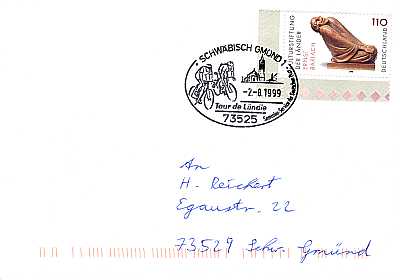 SCHWÄBISCH GMÜND
-2-8.1999
Tour de Ländle
73525
KULTURSTIFTUNG
DER LÄNDER
ERNST
BARLACH
110
DEUTSCHLAND
An
H. Reichert
Egaustr. 22
73529 Schw. Gmünd